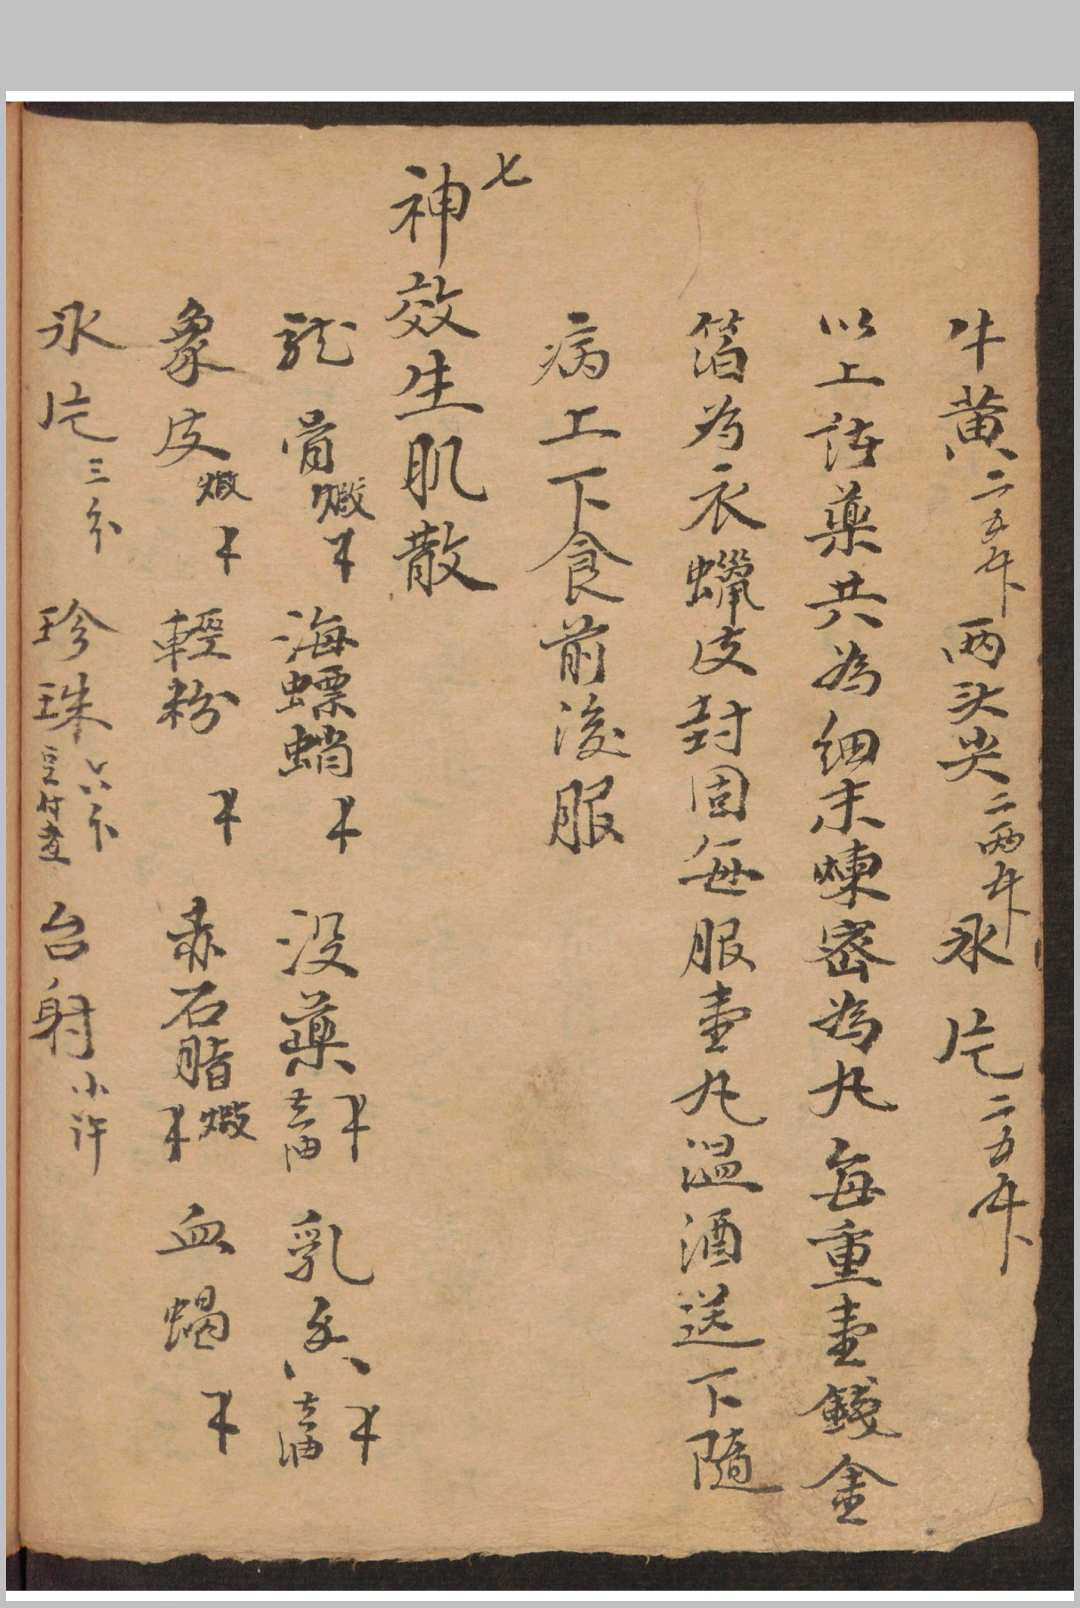 牛黄二五分 两头尖二两 冰片二五分
以上諸藥共為細末煉密為丸每重壹錢金
箔为衣蠟皮封固每服壹丸温酒送下隨
病上下食前後服
七
神效生肌散
龍骨煅 海螵蛸 没藥去油 乳香去油
象皮煅 輕粉 赤石脂煅 血蝎
冰片三分 珍珠六分豆付煮 台射小许